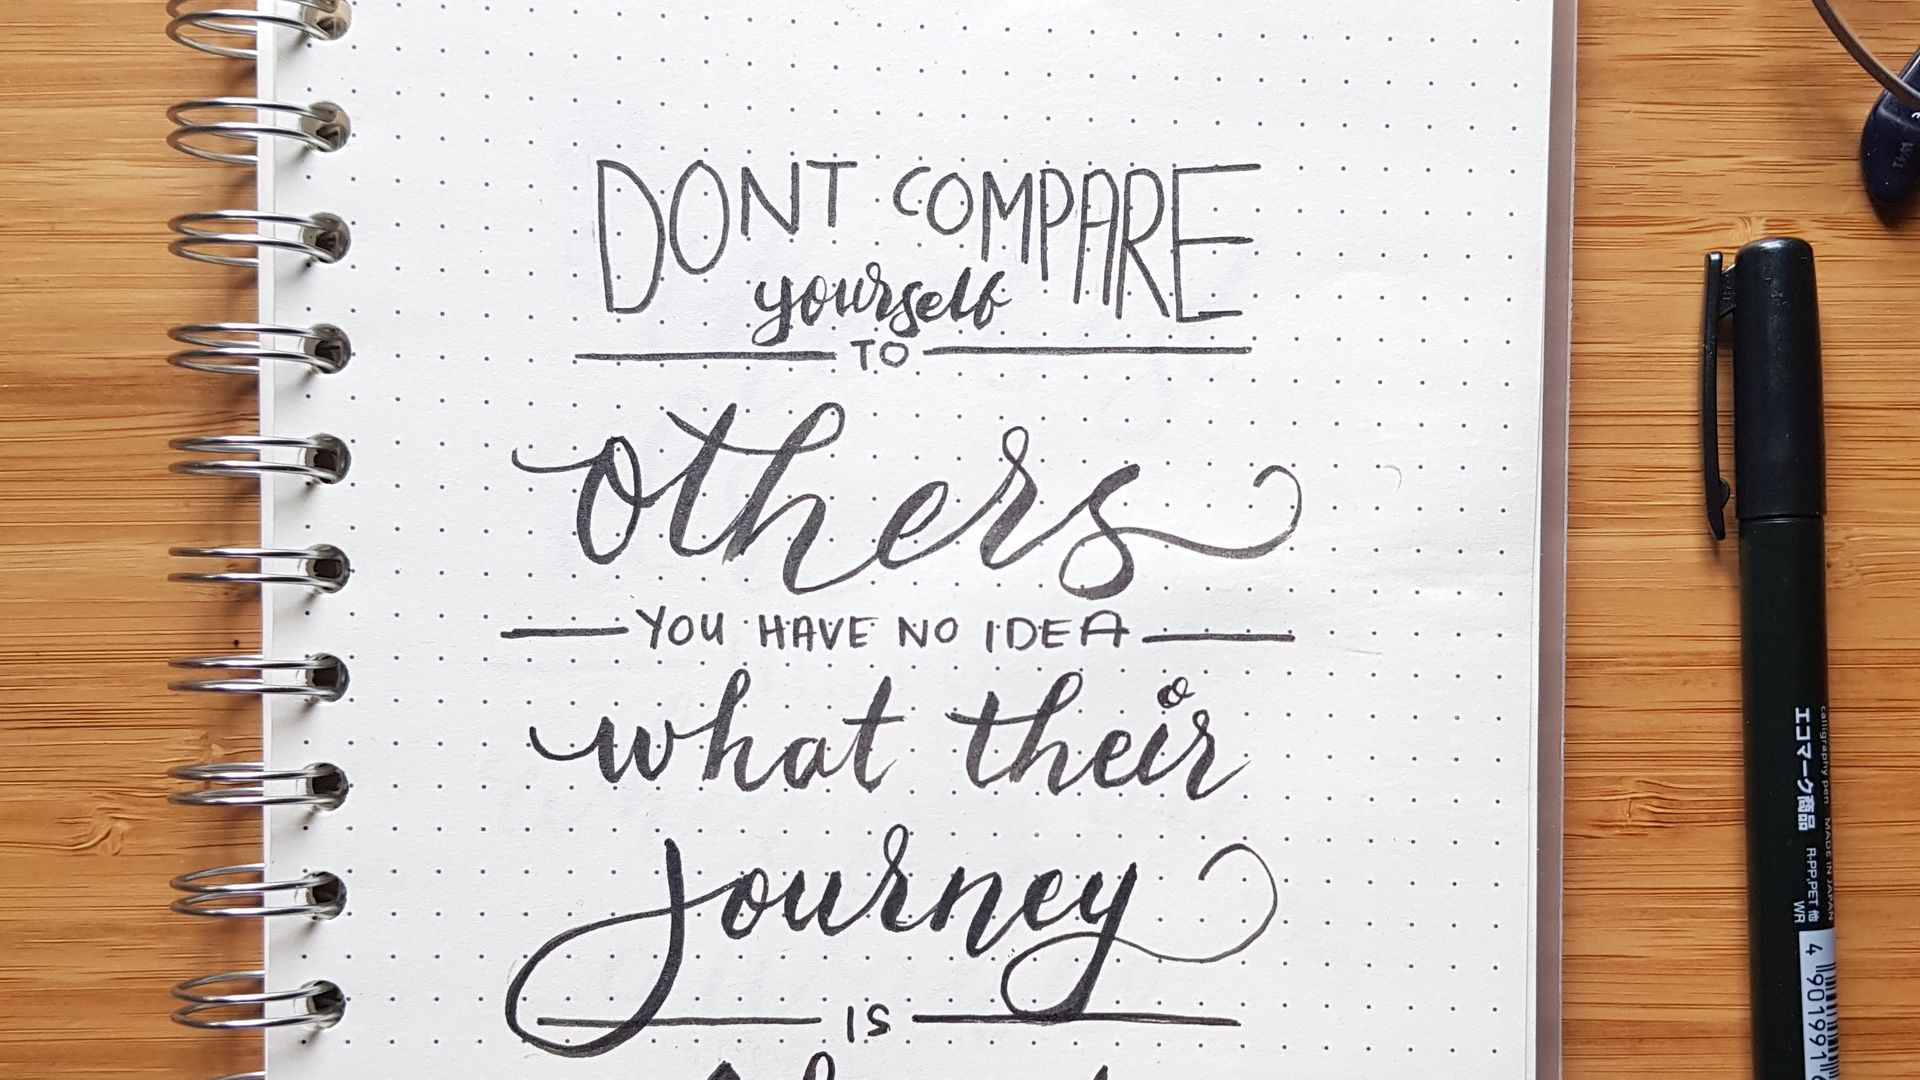 DONT COMPARE
yourself
TO
others
YOU HAVE NO IDEA
what their
journey
IS
calligraphy pen MADE IN JAPAN
エコマーク商品
R-PP,PET 他
WR
4 901991